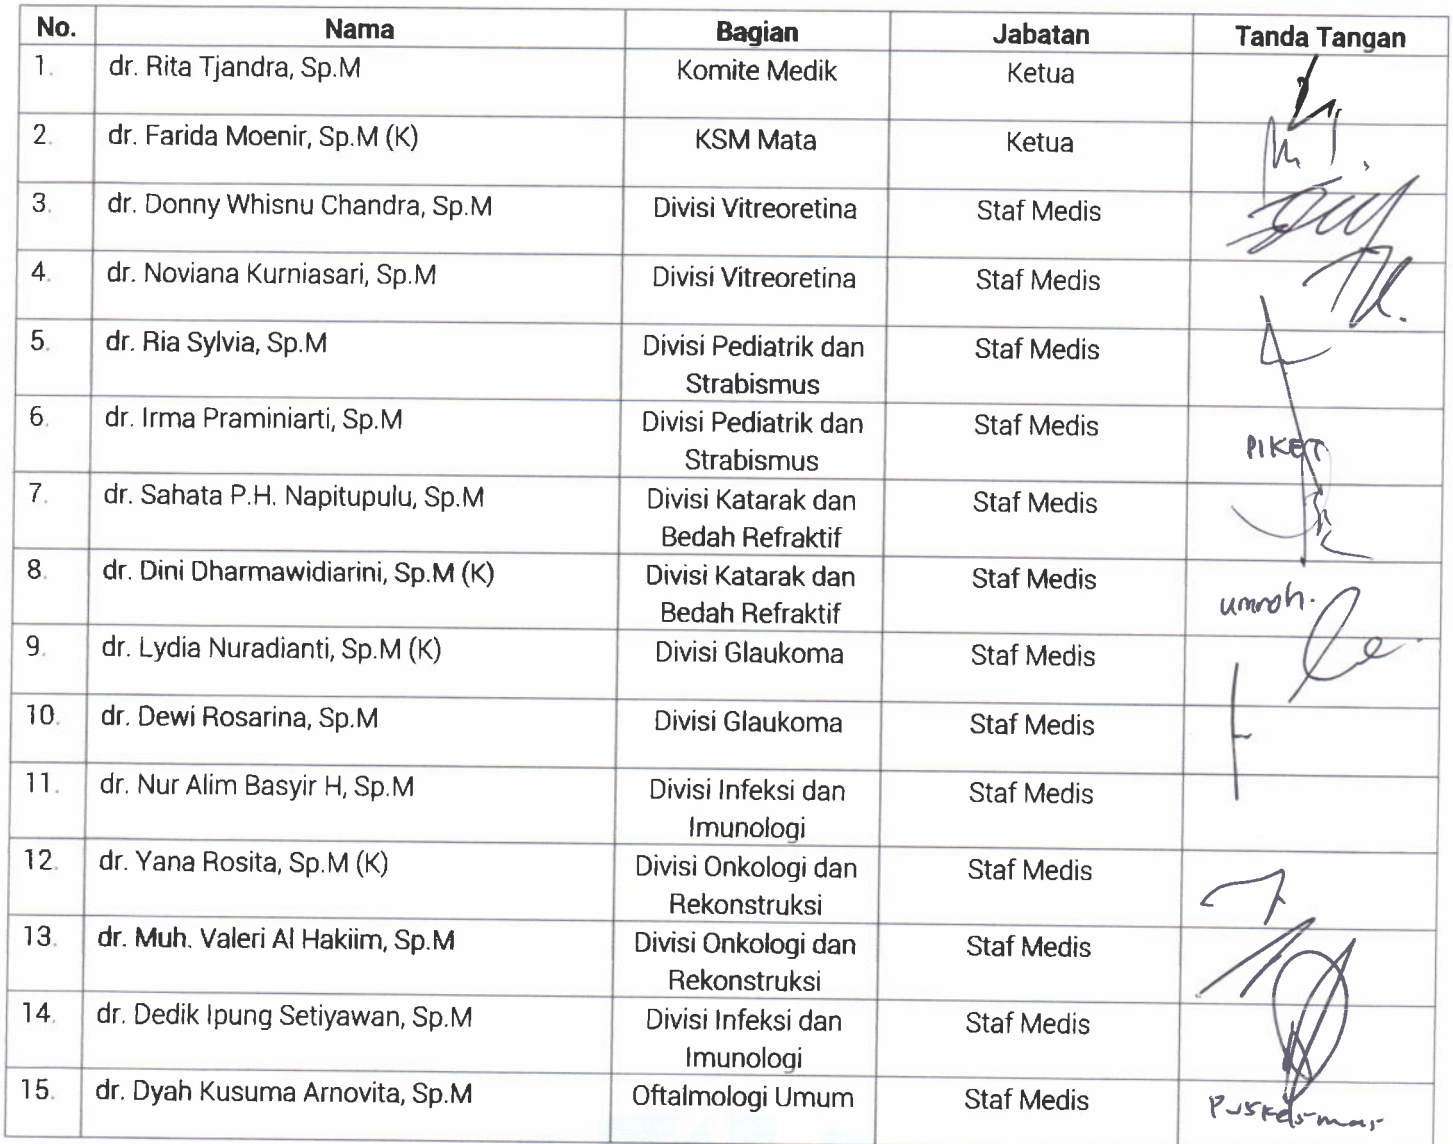 No. Nama Bagian Jabatan Tanda Tangan
1. dr. Rita Tjandra, Sp.M Komite Medik Ketua
2. dr. Farida Moenir, Sp.M (K) KSM Mata Ketua
3. dr. Donny Whisnu Chandra, Sp.M Divisi Vitreoretina Staf Medis
4. dr. Noviana Kurniasari, Sp.M Divisi Vitreoretina Staf Medis
5. dr. Ria Sylvia, Sp.M Divisi Pediatrik dan Staf Medis
Strabismus
6. dr. Irma Praminiarti, Sp.M Divisi Pediatrik dan Staf Medis PIKET
Strabismus
7. dr. Sahata P.H. Napitupulu, Sp.M Divisi Katarak dan Staf Medis
Bedah Refraktif
8. dr. Dini Dharmawidiarini, Sp.M (K) Divisi Katarak dan Staf Medis umroh.
Bedah Refraktif
9. dr. Lydia Nuradianti, Sp.M (K) Divisi Glaukoma Staf Medis
10. dr. Dewi Rosarina, Sp.M Divisi Glaukoma Staf Medis
11. dr. Nur Alim Basyir H, Sp.M Divisi Infeksi dan Staf Medis
Imunologi
12. dr. Yana Rosita, Sp.M (K) Divisi Onkologi dan Staf Medis
Rekonstruksi
13. dr. Muh. Valeri Al Hakiim, Sp.M Divisi Onkologi dan Staf Medis
Rekonstruksi
14. dr. Dedik Ipung Setiyawan, Sp.M Divisi Infeksi dan Staf Medis
Imunologi
15. dr. Dyah Kusuma Arnovita, Sp.M Oftalmologi Umum Staf Medis Puskesmas